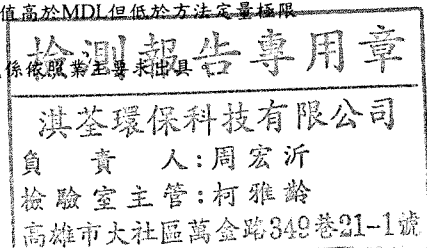 值高於MDL但低於方法定量極限
檢測報告專用章
係依照業主要求出具。
淇荃環保科技有限公司
負責人:周宏沂
檢驗室主管:柯雅齡
高雄市大社區萬金路349巷21-1號